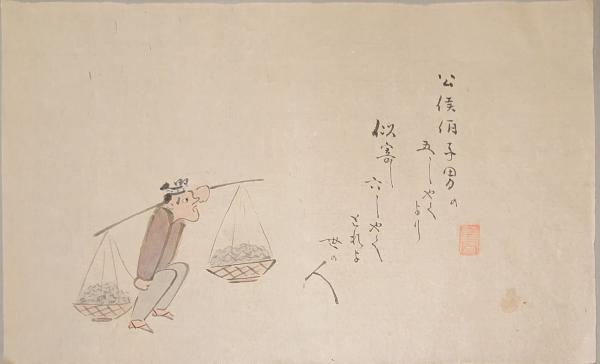 公侯伯子男の
五しやくより
似寄し六しやく
されよ
世の人